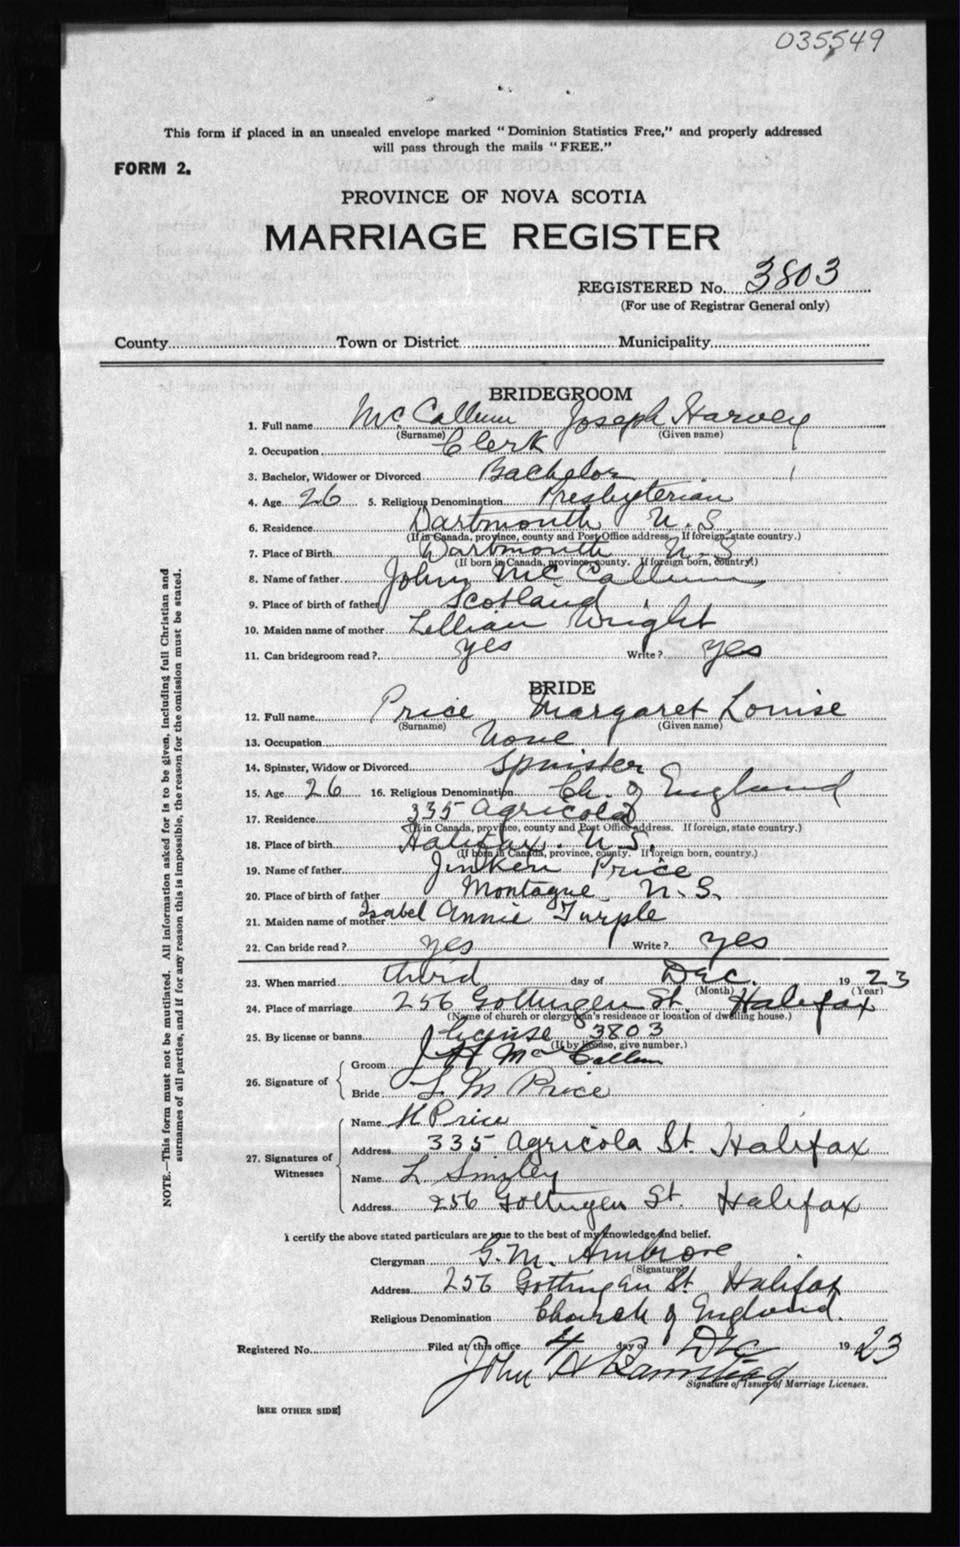 035549
This form if placed in an unsealed envelope marked "Dominion Statistics Free," and properly addressed
will pass through the mails "FREE."
FORM 2.
PROVINCE OF NOVA SCOTIA
MARRIAGE REGISTER
REGISTERED No. 3803
(For use of Registrar General only)
County Town or District Municipality
BRIDEGROOM
1. Full name McCallum Joseph Harvey
(Surname) (Given name)
2. Occupation Clerk
3. Bachelor, Widower or Divorced Bachelor
4. Age 26 5. Religious Denomination Presbyterian
6. Residence Dartmouth N.S.
(If in Canada, province, county and Post Office address. If foreign, state country.)
7. Place of Birth Dartmouth N.S
(If born in Canada, province, county. If foreign born, country.)
8. Name of father John McCallum
9. Place of birth of father Scotland
10. Maiden name of mother Lillian Wright
11. Can bridegroom read? yes Write? yes
BRIDE
12. Full name Price Margaret Louise
(Surname) (Given name)
13. Occupation None
14. Spinster, Widow or Divorced Spinister
15. Age 26 16. Religious Denomination Ch. of England
17. Residence 335 Agricola
(If in Canada, province, county and Post Office address. If foreign, state country.)
18. Place of birth Halifax. N.S.
(If born in Canada, province, county. If foreign born, country.)
19. Name of father Price
20. Place of birth of father Montague N.S.
21. Maiden name of mother Isabel Annie Turple
22. Can bride read? yes Write? yes
23. When married third day of Dec. 1923
(Month) (Year)
24. Place of marriage 256 Gottingen St. Halifax
(Name of church or clergyman's residence or location of dwelling house.)
25. By license or banns license 3803
(If by license, give number.)
26. Signature of
Groom J H McCallum
Bride L. M Price
27. Signatures of Witnesses
Name H Price
Address 335 Agricola St. Halifax
Name L
Address 256 Gottingen St. Halifax
I certify the above stated particulars are true to the best of my knowledge and belief.
Clergyman G. M. Ambrose
(Signature)
Address 256 Gottingen St Halifax
Religious Denomination Church of England.
Registered No. Filed at this office 4 day of Dec 1923
John
Signature of Issuer of Marriage Licenses.
[SEE OTHER SIDE]
NOTE.—This form must not be mutilated. All information asked for is to be given, including full Christian and
surnames of all parties, and if for any reason this is impossible, the reason for the omission must be stated.